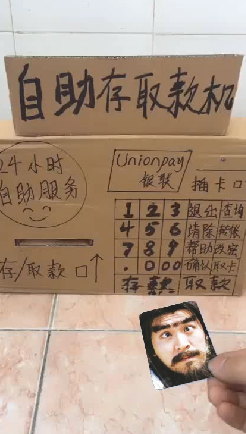 自助存取款机
24小时
自助服务
Unionpay
银联
插卡口
1 2 3 退出 查询
4 5 6 清除 转账
7 8 9 帮助 改密
. 0 00 确认 取卡
存/取款口↑
存款 取款